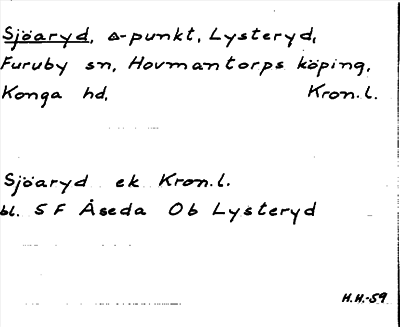 Sjöaryd, △-punkt, Lysteryd,
Furuby sn, Hovmantorps köping,
Konga hd, Kron.l.
Sjöaryd ek Kron.l.
bl. 5 F Åseda Ob Lysteryd
H.H.-59